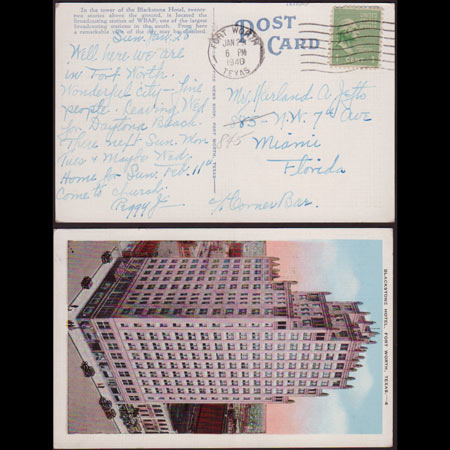 In the tower of the Blackstone Hotel, twenty-
two stories above the ground, is located the
broadcasting station of WBAP, one of the largest
broadcasting stations in the south. From here
a remarkable view of the city may be obtained.
POST
CARD
FORT WORTH
JAN 29
6 PM
1940
TEXAS
Sun. Jan. 28
Well here we are
in Fort Worth.
Wonderful city - fine
people. Leaving Wed
for Daytona Beach.
There next Sun. Mon
Tues & Maybe Wed.
Home for Sun. Feb. 11th
Come to church.
Peggy J.
Mr. Harland A.
N.W. 7th Ave
845
Miami
Florida
c/o Corner Bar.
BLACKSTONE HOTEL, FORT WORTH, TEXAS